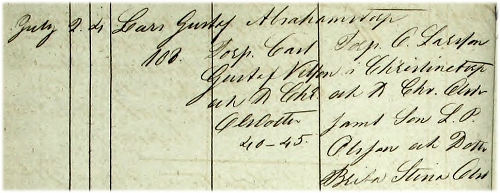 July 2. 4 Lars Gustaf Abrahamstorp
188. Torp. Carl Torp. O. Larsson
Gustaf Nilsson i Christinetorp
och H Chr. och H Chr. Olsdr
Olsdotter samt Son L. P.
40-45. Olsson och Dottr
Brita Stina Olsd